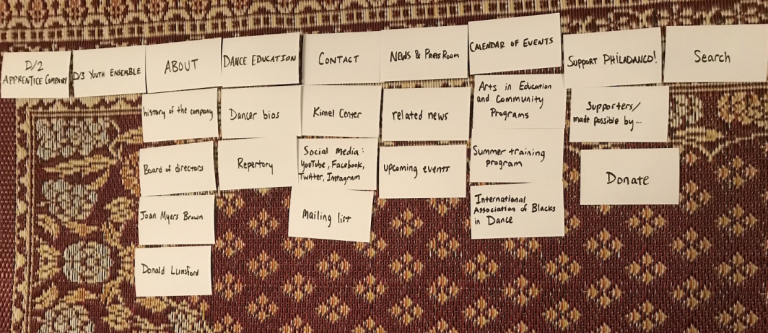 D/2
APPRENTICE COMPANY
D/3 YOUTH ENSEMBLE
ABOUT
DANCE EDUCATION
CONTACT
NEWS & PRESS ROOM
CALENDAR OF EVENTS
SUPPORT PHILADANCO!
Search
history of the company
Dancer bios
Kimel Center
related news
Arts in Education
and Community
Programs
Supporters/
made possible by...
Board of directors
Repertory
Social media:
YouTube, Facebook,
Twitter, Instagram
upcoming events
Summer training
program
Donate
Joan Myers Brown
Mailing list
International
Association of Blacks
in Dance
Donald Lunsford